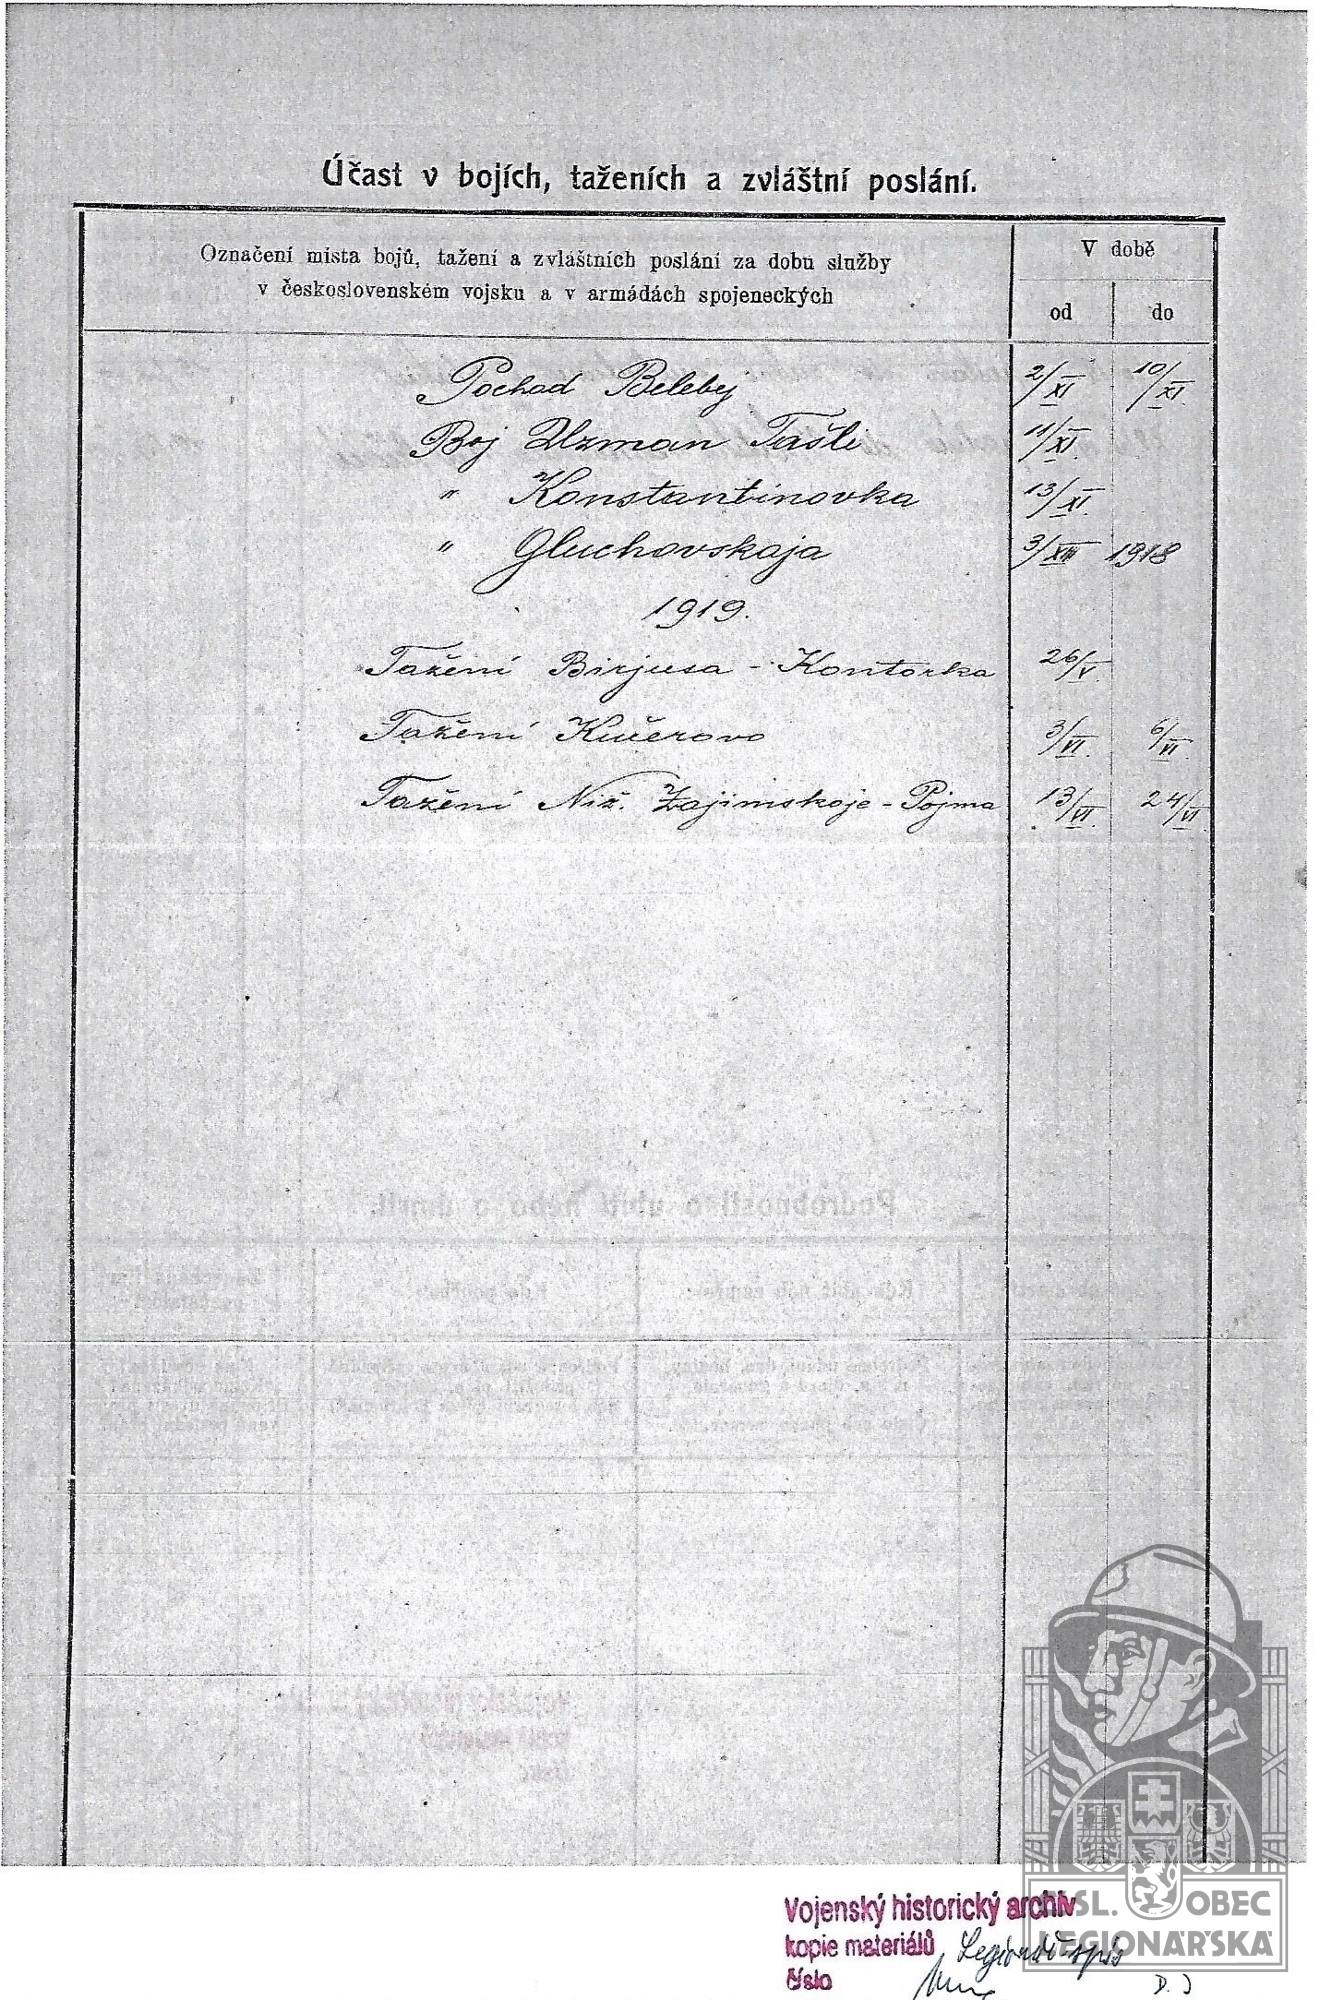 Účast v bojích, taženích a zvláštní poslání.
Označení místa bojů, tažení a zvláštních poslání za dobu služby
v československém vojsku a v armádách spojeneckých
V době
od
do
Pochod Beleby 2/XI 10/XI.
Boj Uzman Tašli 11/XI.
" Konstantinovka 13/XI.
" Gluchovskaja 3/XII 1918
1919.
Tažení Birjusa - Kontorka 26/V.
Tažení Kučerovo 3/VI. 6/VI.
Tažení Niž. Zajimskoje - Pojma 13/VI. 24/VI.
Podrobnosti o ubití nebo o úmrtí.
Vojenský historický archiv
kopie materiálů
číslo
D. J
ČSL. OBEC
LEGIONÁŘSKÁ